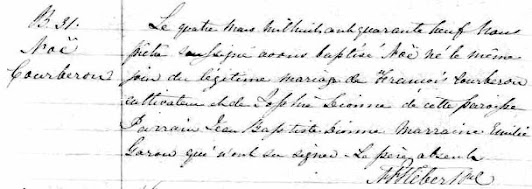 B 31.
Noë
Courberon
Le quatre Mars mil huit cent quarante neuf nous
prêtre soussigné avons baptisé Noë né le même
jour du légitime mariage de Francois Courberon
cultivateur et de Sophie Dionne de cette paroisse
Parrain Jean Baptiste Dionne Marraine Emilie
qui n'ont su signer. Le père absent